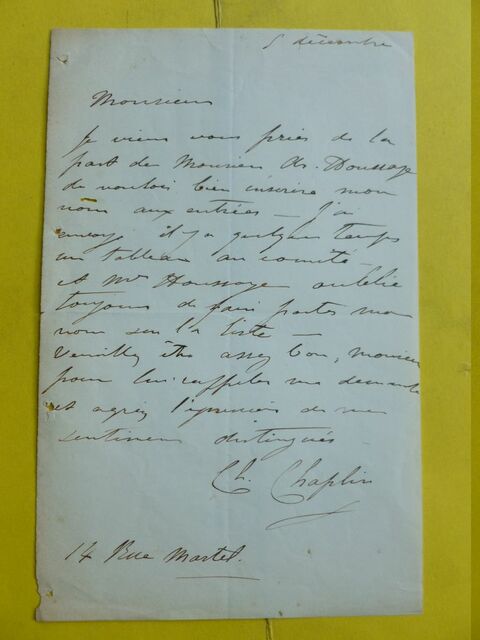 5 décembre
Monsieur
Je viens vous prier de la
part de Monsieur Ar. Houssaye
de vouloir bien inscrire mon
nom aux entrées — j'ai
envoyé il y a quelque temps
un tableau au comité
et Mr Houssaye oublie
toujours de faire porter mon
nom sur la liste —
Veuillez être assez bon, Monsieur
pour lui rappeler ma demande
et agréez l'expression de mes
sentiments distingués
Ch. Chaplin
14 Rue Martel.